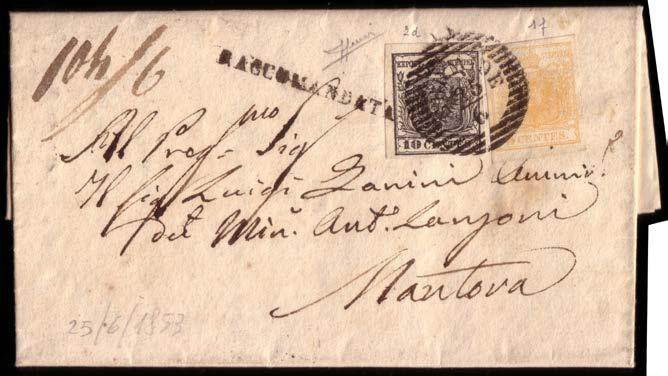 2d 17
104/6
RACCOMANDATA
KPOST
10 CENTES.
5 CENTES.
All Preg.mo Sig.
Il Sig. Luigi Zanini Ammi.
del Min. Ant.o Lanzoni
Mantova
25/6/1853